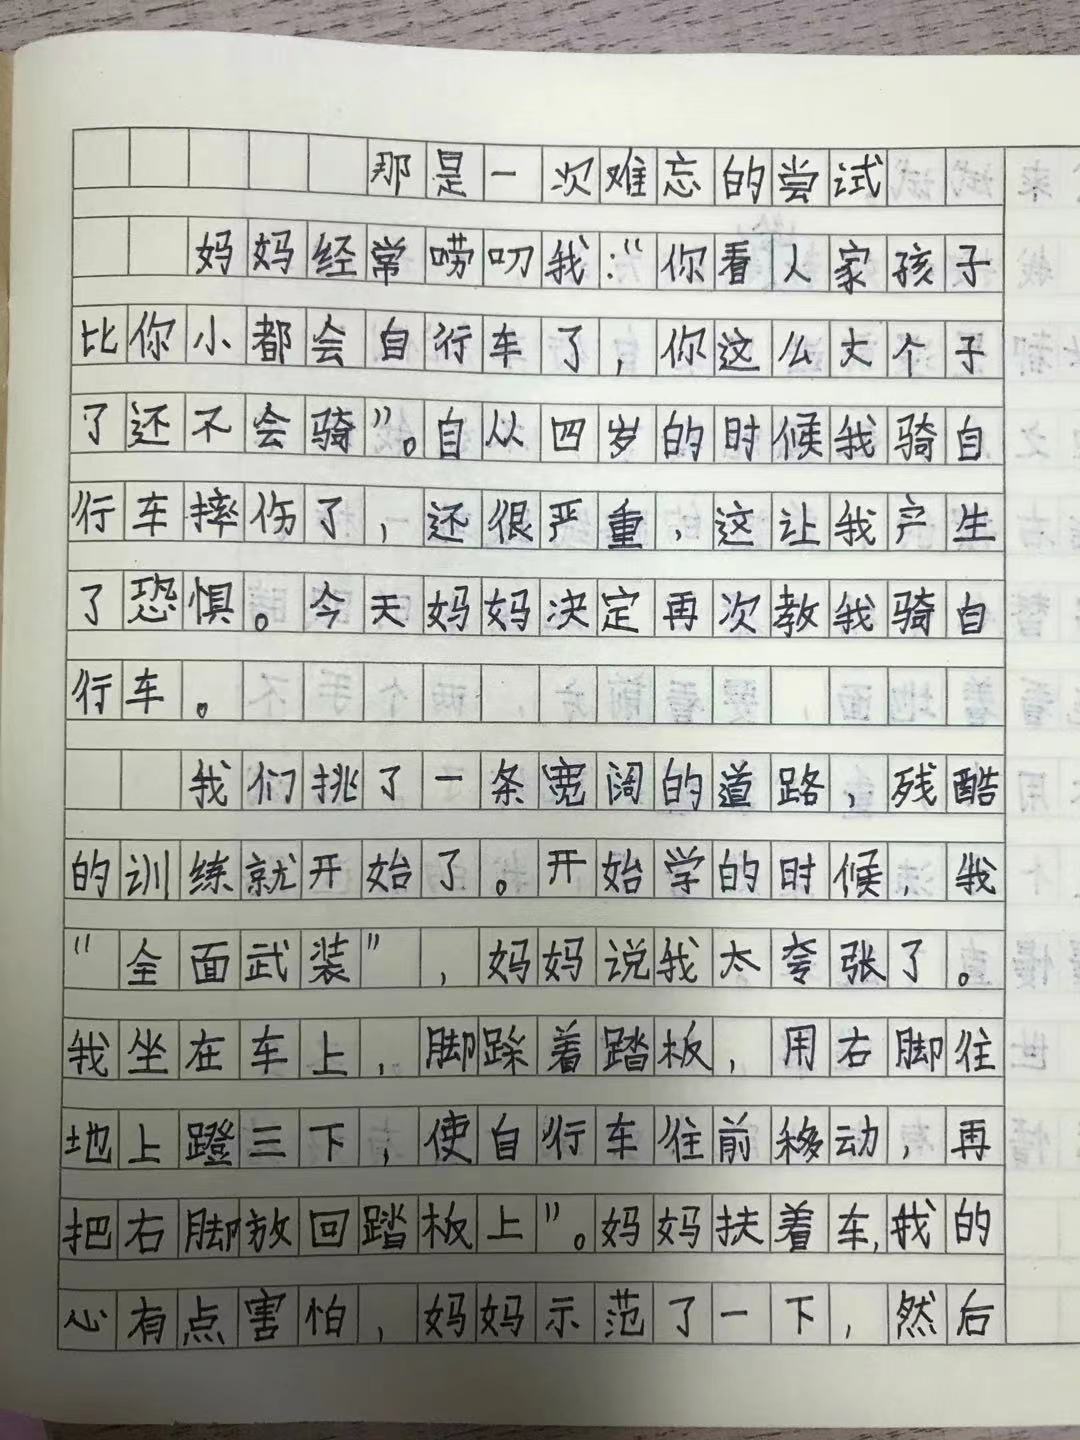 那是一次难忘的尝试
妈妈经常唠叨我：“你看人家孩子
比你小都会自行车了，你这么大个子
了还不会骑”。自从四岁的时候我骑自
行车摔伤了，还很严重，这让我产生
了恐惧。今天妈妈决定再次教我骑自
行车。
我们挑了一条宽阔的道路，残酷
的训练就开始了。开始学的时候，我
“全面武装”，妈妈说我太夸张了。
我坐在车上，脚踩着踏板，用右脚往
地上蹬三下，使自行车往前移动，再
把右脚放回踏板上”。妈妈扶着车，我的
心有点害怕，妈妈示范了一下，然后